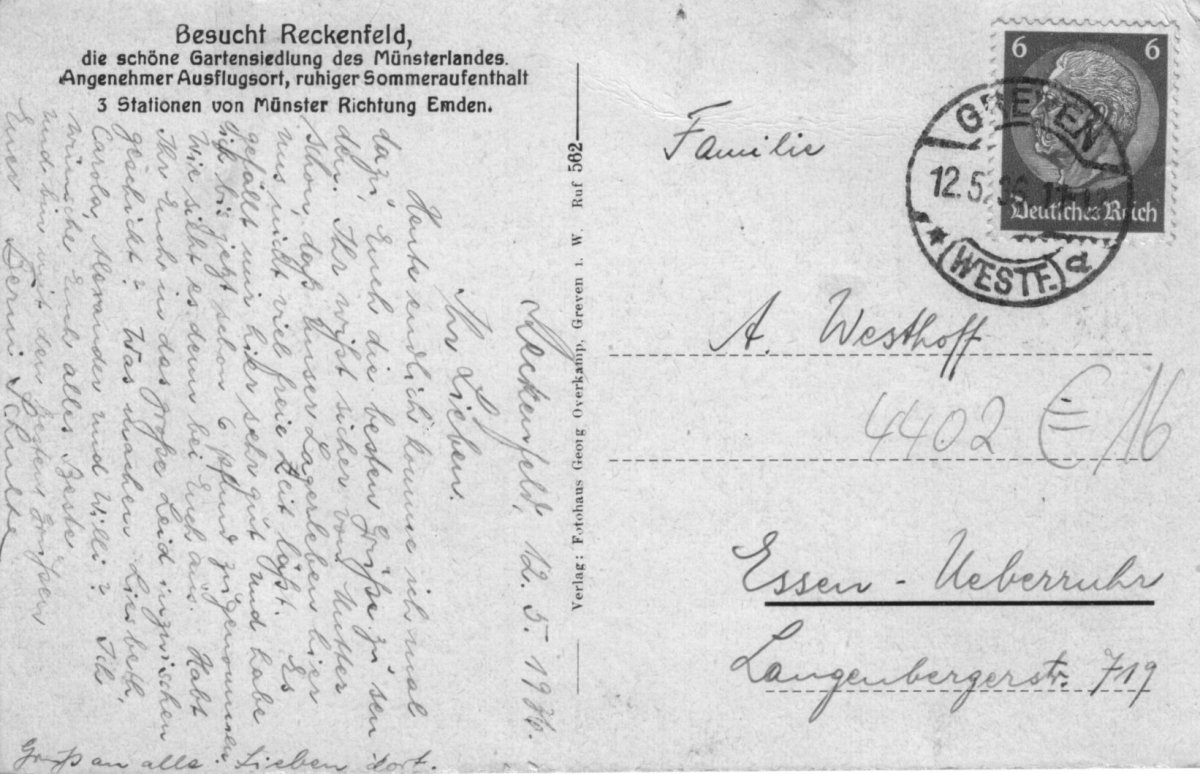 Besucht Reckenfeld,
die schöne Gartensiedlung des Münsterlandes.
Angenehmer Ausflugsort, ruhiger Sommeraufenthalt
3 Stationen von Münster Richtung Emden.
Reckenfeld, 12. 5. 1936.
Ihr Lieben.
Heute endlich komme ich mal
dazu, Euch die besten Grüße zu sen
den. Ihr wißt sicher von Mutter
schon, daß unser Lagerleben hier
uns nicht viel freie Zeit läßt. Es
gefällt mir hier sehr gut und habe
ich bis jetzt schon 6 Pfund zugenommen
Wie sieht es denn bei Euch aus. Habt
Ihr Euch in das große Leid inzwischen
geschickt? Was machen Liesbeth,
Carola, Alexander und Willi? Ich
wünsche Euch alles Beste
und bin mit den Grüßen
Euer
Gruß an alle Lieben dort.
Verlag: Fotohaus Georg Overkamp, Greven i. W. Ruf 562
6 6
Deutsches Reich
GREVEN
12.5.36
(WESTF.) d
Familie
A. Westhoff
4402 € 16
Essen - Ueberruhr
Langenbergerstr. 719